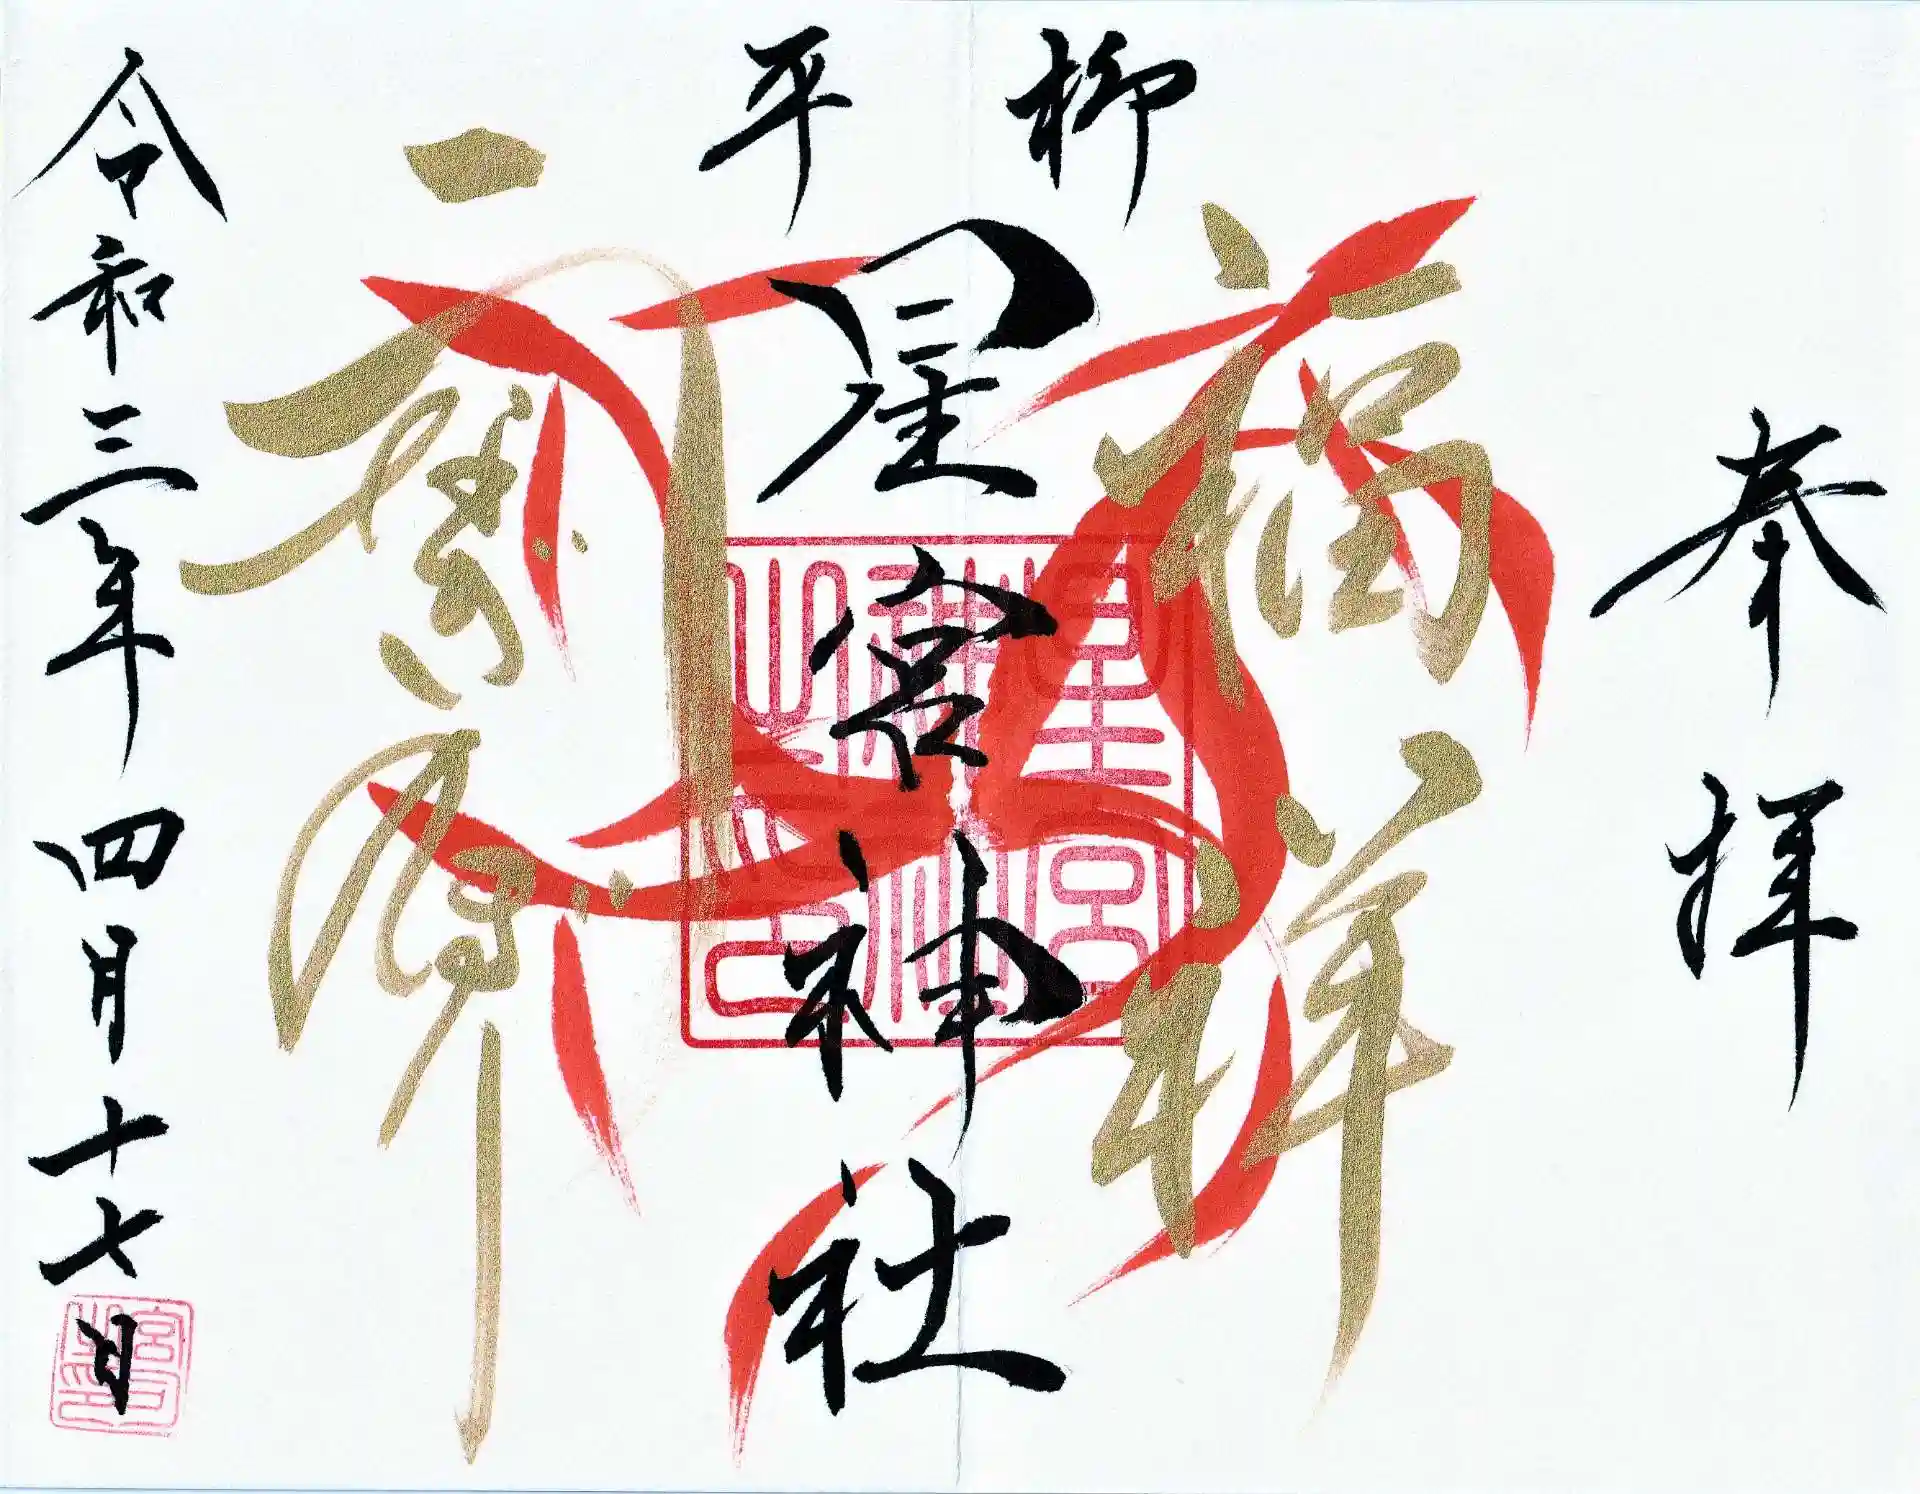 奉拝
福祥
柳平
星宮神社
星宮神社之印
令和三年四月十七日
宮司之印